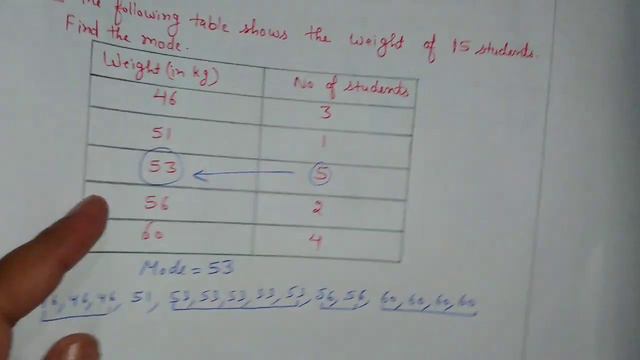 The following table shows the weight of 15 students.
Find the mode.
Weight (in kg) No of students
46 3
51 1
53 5
56 2
60 4
Mode = 53
46, 46, 46, 51, 53, 53, 53, 53, 53, 56, 56, 60, 60, 60, 60